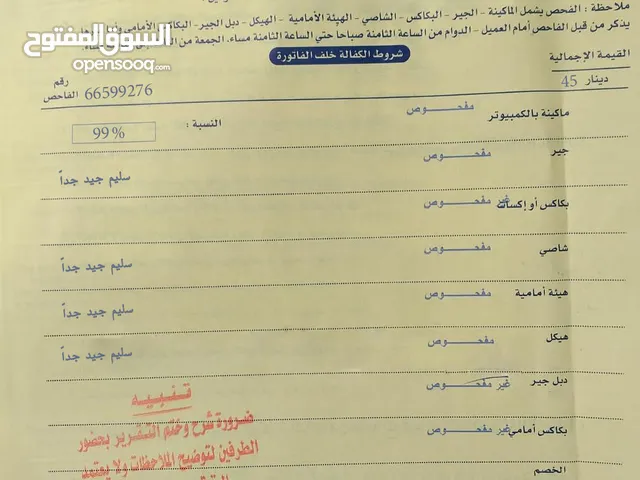 ملاحظة : الفحص يشمل الماكينة - الجير - البكاكس - الشاصي - الهيئة الأمامية - الهيكل - دبل الجير - البكاكس الأمامي
يذكر من قبل الفاحص أمام العميل - الدوام من الساعة الثامنة صباحا حتي الساعة الثامنة مساء. الجمعة من
السوق المفتوح
opensooq.com
شروط الكفالة خلف الفاتورة
القيمة الإجمالية
45 دينار
رقم الفاحص 66599276
ماكينة بالكمبيوتر مفحوص النسبة : 99%
جير مفحوص سليم جيد جداً
بكاكس أو إكسات غير مفحوص
شاصي مفحوص سليم جيد جداً
هيئة أمامية مفحوص سليم جيد جداً
هيكل مفحوص سليم جيد جداً
دبل جير غير مفحوص
بكاكس أمامي غير مفحوص
الخصم
تنبيه
ضرورة شرح وختم التقرير بحضور
الطرفين لتوضيح الملاحظات ولا يعتمد